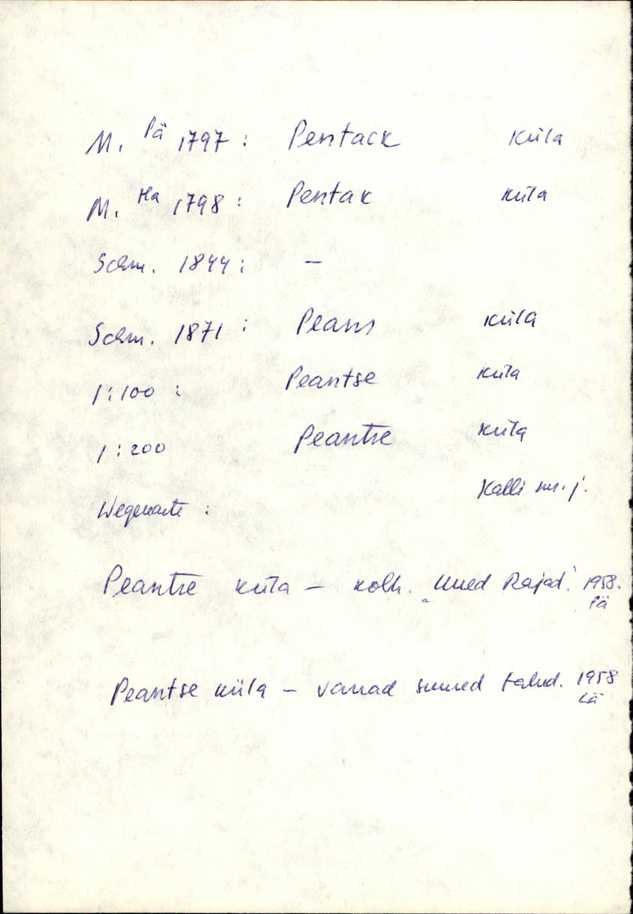 M. Pä 1797: Pentack küla
M. Ha 1798: Pentak küla
Schm. 1844: –
Schm. 1871: Peans küla
1:100: Peantse küla
1:200 Peantse küla
Wegekarte: Kalli mr. j.
Peantse küla – kolh. „Uued Rajad“. 1958. Pä
Peantse küla – vanad suured talud. 1958 Lä